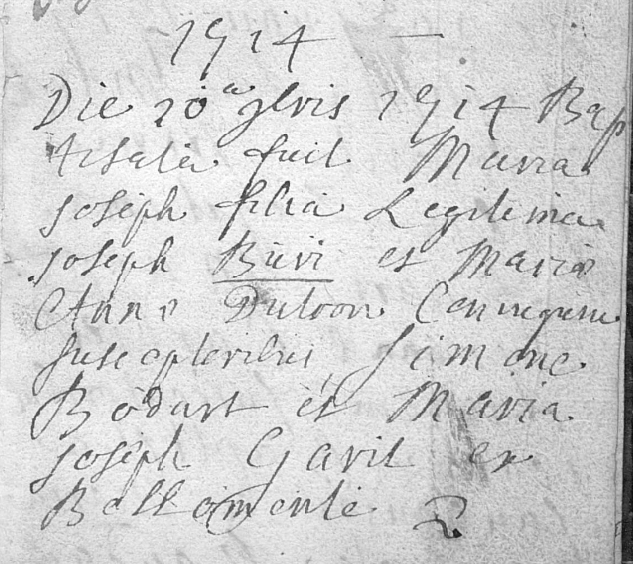 1914 —
Die 20a 9bris 1914 Bap
tisata fuit Maria
joseph filia Legitima
joseph Buri et Maria
Anna Dutron
susceptoribus Simone
Bodart et Maria
joseph Gavit ex
Bellomonte